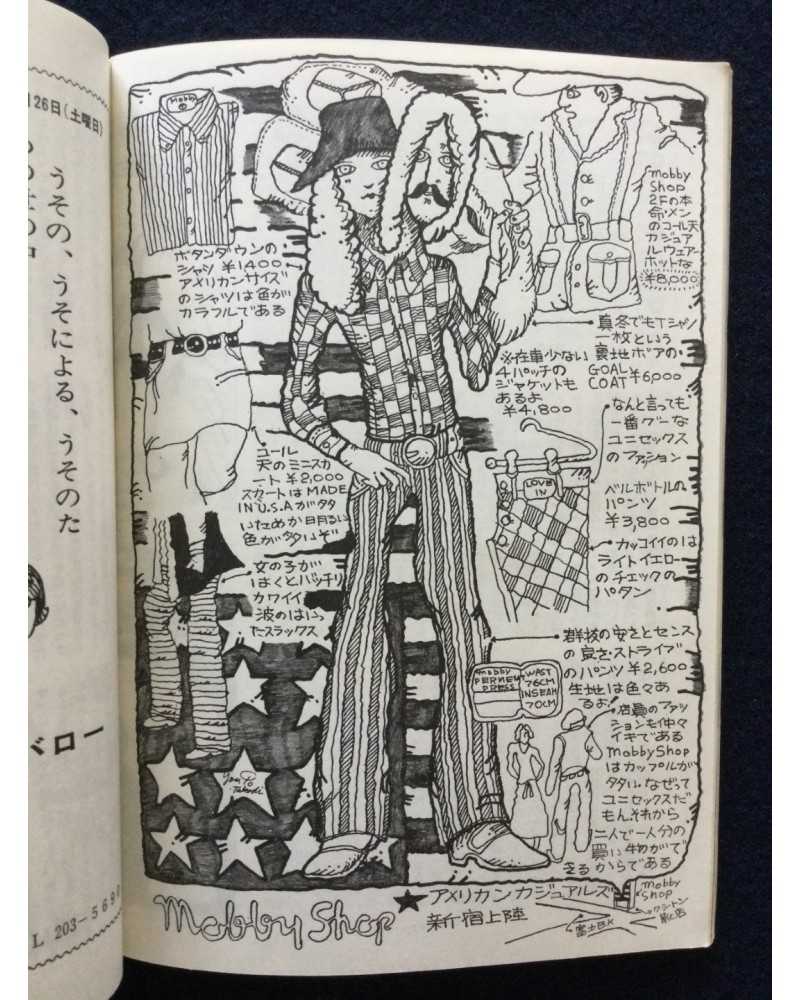 月26日(土曜日)
うその、うそによる、うそのた
ベロー
L 203-5690
mobby
ボタンダウンの
シャツ ¥1400
アメリカンサイズ
のシャツは色が
カラフルである
mobby
Shop
2Fの本
命・メン
のコール天
カジュア
ル・ウェアー
ホットな
¥8,000
真冬でもTシャツ
一枚という
裏地ボアの
GOAL
COAT ¥6,000
※在庫少ない
4パッチの
ジャケットも
あるよ
¥4,800
なんと言っても
一番グーな
ユニセックス
のファッション
LOVE
IN
ベルボトルの
パンツ
¥3,800
カッコイイのは
ライトイエロー
のチェックの
パタン
コール
天のミニスカ
ート ¥2,000
スカートは MADE
IN U.S.A が多
いためか明るい
色が多いぞ
女の子が
はくとバッチリ
カワイイ
波のはいっ
たスラックス
群抜の安さとセンス
の良さ・ストライプ
のパンツ ¥2,600
生地は色々あ
るよ
mobby
PERMEN
PRESS
WAST
76CM
INSEAM
70CM
店員のファッ
ションも仲々
イキである
mobby Shop
はカップルが
多い なぜって
ユニセックスだ
もん それから
二人で一人分の
買い物がで
きるからである
Mobby Shop
★アメリカンカジュアルズ
新宿上陸
mobby
Shop